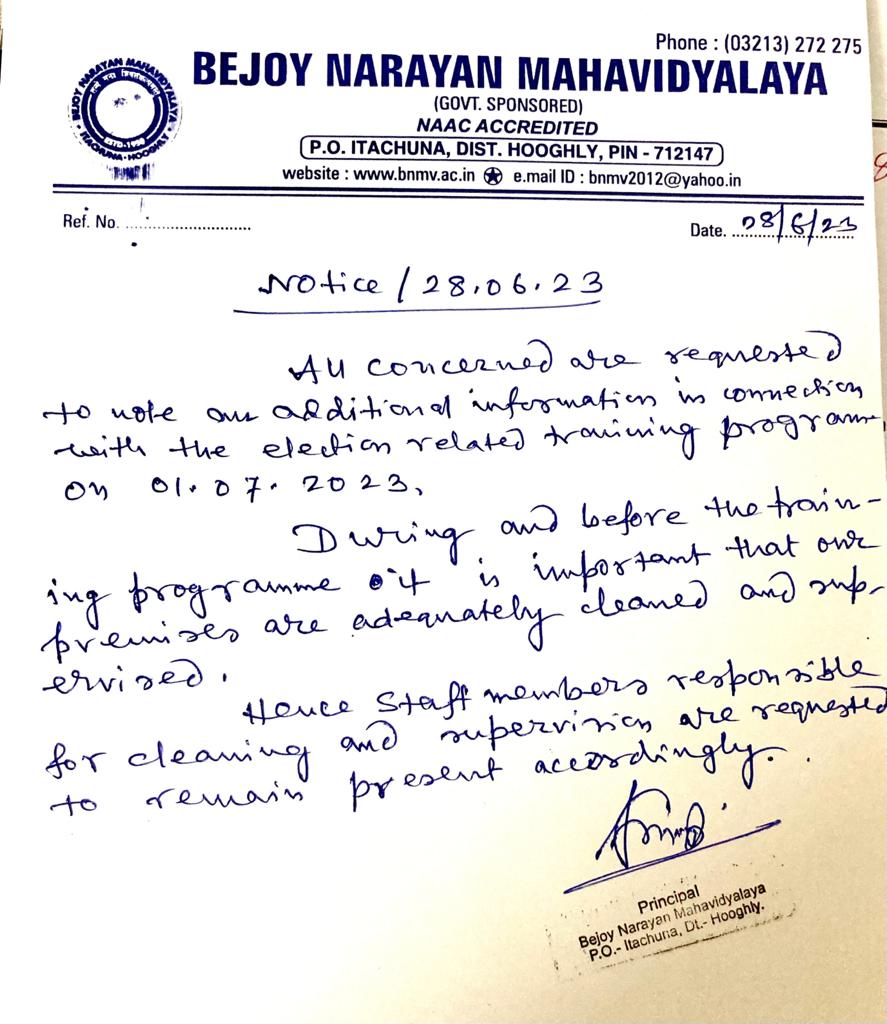 Phone : (03213) 272 275
BEJOY NARAYAN MAHAVIDYALAYA
(GOVT. SPONSORED)
NAAC ACCREDITED
P.O. ITACHUNA, DIST. HOOGHLY, PIN - 712147
website : www.bnmv.ac.in e.mail ID : bnmv2012@yahoo.in
BEJOY NARAYAN MAHAVIDYALAYA
ITACHUNA - HOOGHLY
Ref. No. ..............................
Date. 28/6/23
Notice / 28.06.23
All concerned are requested
to note an additional information in connection
with the election related training programme
on 01.07.2023.
During and before the train-
ing programme it is important that our
premises are adequately cleaned and sup-
ervised.
Hence Staff members responsible
for cleaning and supervision are requested
to remain present accordingly.
Principal
Bejoy Narayan Mahavidyalaya
P.O.- Itachuna, Dt.- Hooghly.